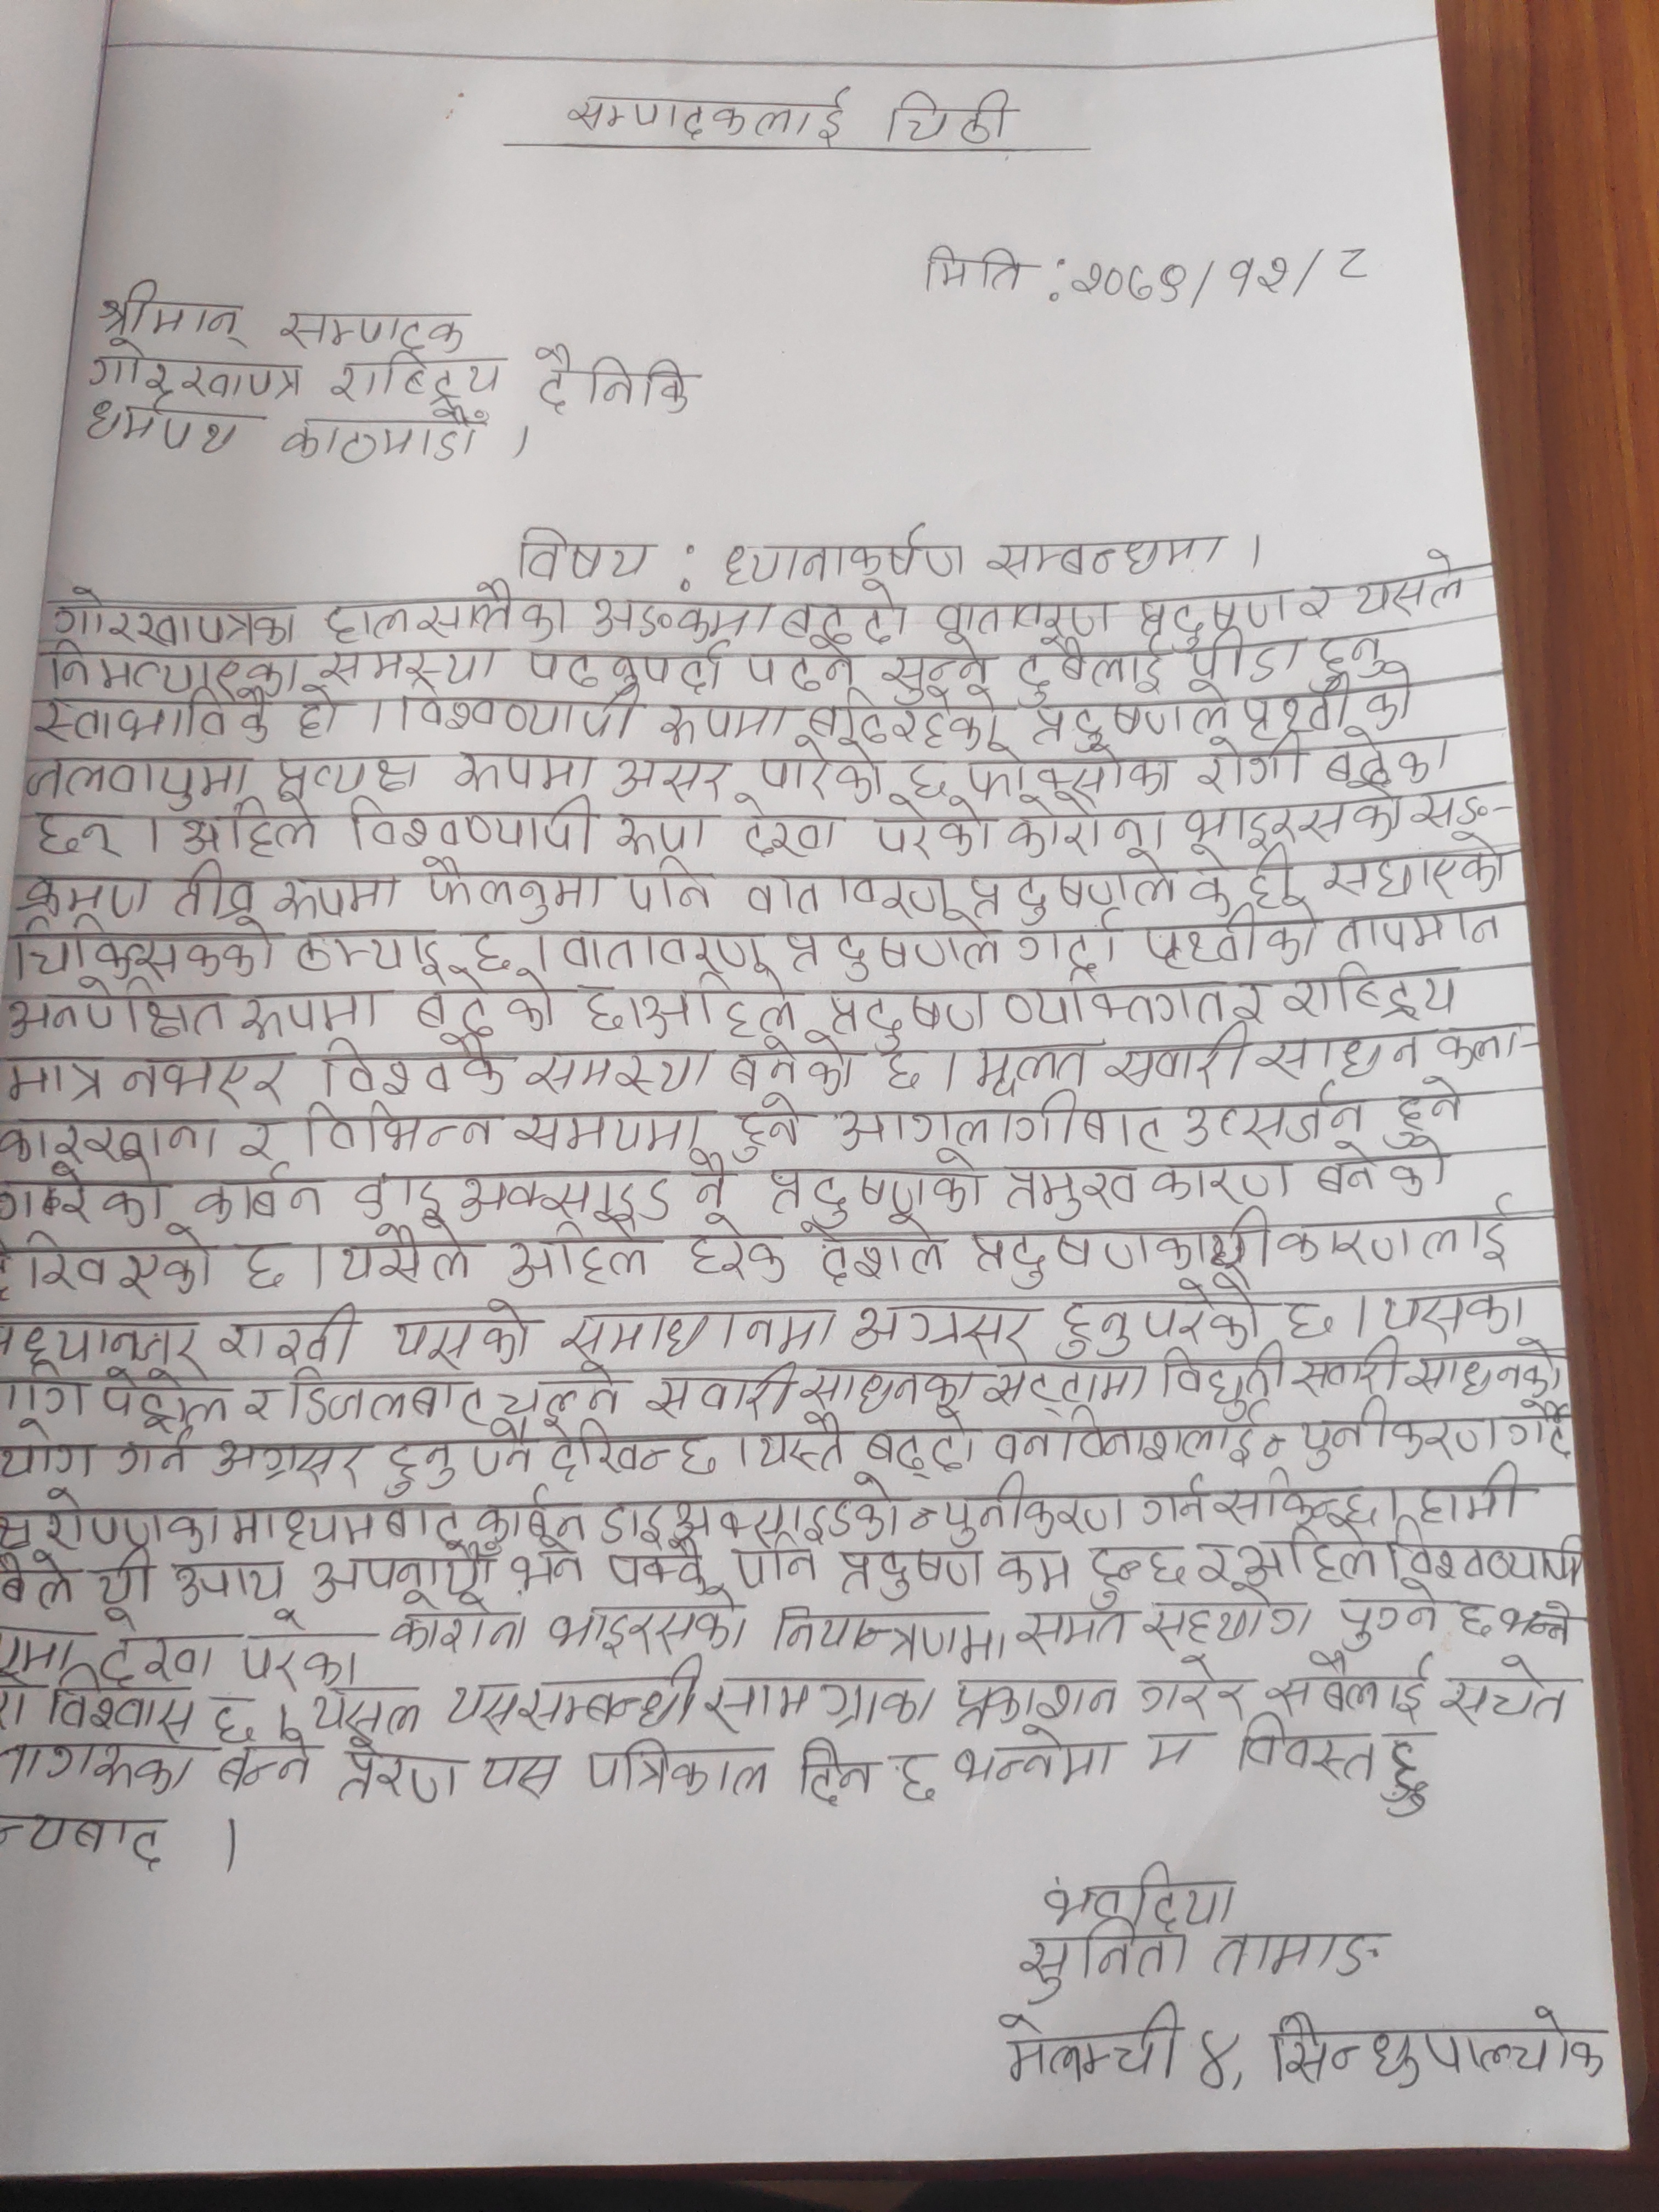 सम्पादकलाई चिठी
मिति : २०७९/१२/८
श्रीमान् सम्पादक
गोरखापत्र राष्ट्रिय दैनिकि
धर्मपथ काठमाडौँ ।
विषय : ध्यानाकर्षण सम्बन्धमा ।
गोरखापत्रका हालसालैका अङ्कमा बढ्दो वातावरण प्रदुषण र यसले
निमत्याएका समस्या पढ्नुपर्दा पढ्ने सुन्ने दुबैलाई पीडा हुनु
स्वाभाविकै हो । विश्वव्यापी रूपमा बढिरहेको प्रदुषणले पृथ्वीको
जलवायुमा प्रत्यक्ष रूपमा असर पारेको छ फोक्सोका रोगी बढेका
छन् । अहिले विश्वव्यापी रूपा देखा परेको कोरोना भाइरसको सङ-
क्रमण तीव्र रूपमा फैलनुमा पनि वातावरण प्रदुषणले केही सघाएको
चिकित्सकको ठम्याइ छ । वातावरण प्रदुषणले गर्दा पृथ्वीको तापमान
अनपेक्षित रूपमा बढेको छ। अहिले प्रदुषण व्यक्तिगत र राष्ट्रिय
मात्र नभएर विश्वकै समस्या बनेको छ । मूलत सवारी साधन कला-
कारखाना र विभिन्न समयमा हुने आगलागीबाट उत्सर्जन हुने
गरेको कार्बन डाइअक्साइड नै प्रदुषणको प्रमुख कारण बनेको
देखिएको छ । यसैले अहिले हरेक देशले प्रदुषणका यी कारणलाई
मध्यानजर राखी यसको समाधानमा अग्रसर हुनुपरेको छ । यसका
पेट्रोल र डिजलबाट चल्ने सवारी साधनका सट्टामा विद्युती सवारी साधनको
योग गर्न अग्रसर हुनुपर्ने देखिन्छ । यस्तै बढ्दो वनविनाशलाई न्युनीकरण गर्दै
क्षरोपणका माध्यमबाट कार्बन डाइअक्साइडको न्युनीकरण गर्न सकिन्छ। हामी
बैले यी उपाय अपनायौँ भने पक्कै पनि प्रदुषण कम हुन्छ र अहिले विश्वव्यापी
पमा देखा परेका कोरोना भाइरसको नियन्त्रणमा समेत सहयोग पुग्ने छ भन्ने
रो विश्वास छ । यसले यससम्बन्धी सामग्रीका प्रकाशन गरेर सबैलाई सचेत
नागरूका बन्ने प्रेरण यस पत्रिकाले दिने छ भन्नेमा म विवस्त छु
न्यबाद ।
भवदिया
सुनिता तामाङ
मेलम्ची ४, सिन्धुपाल्चोक